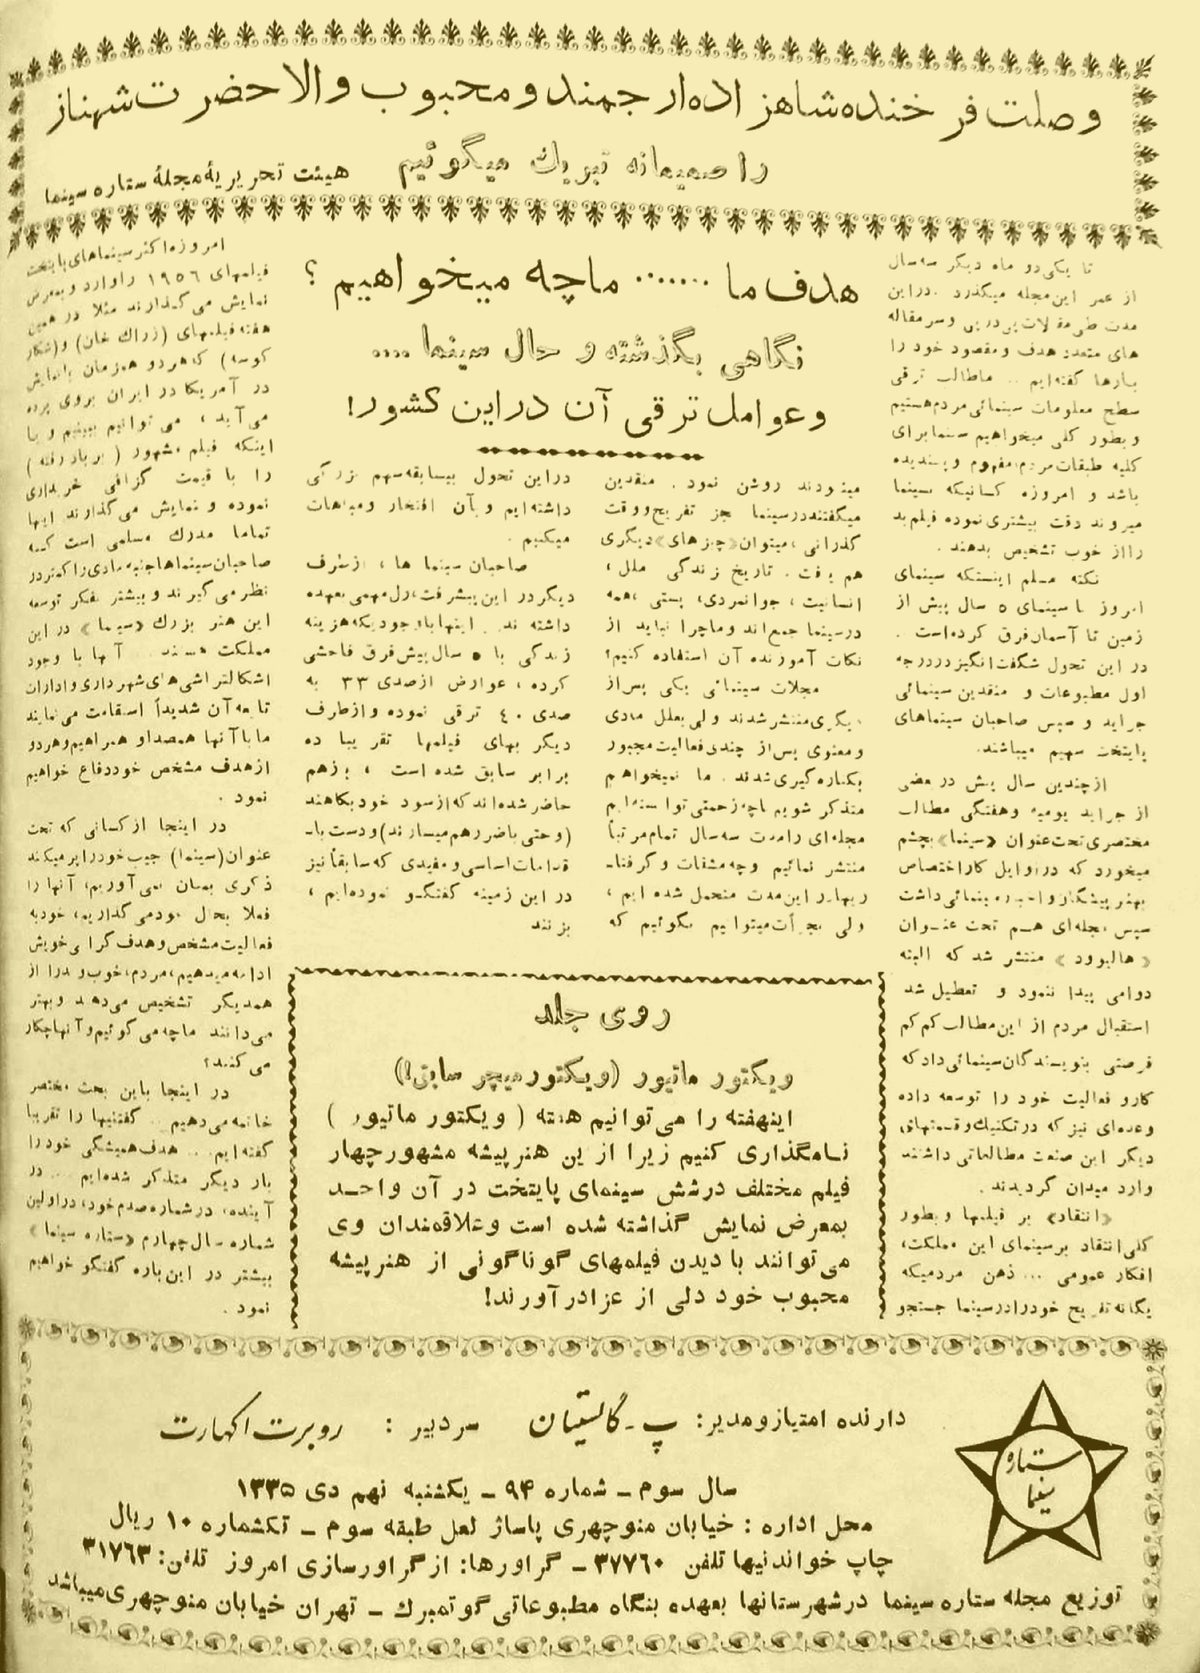 وصلت فرخنده شاهزاده ارجمند و محبوب والاحضرت شهناز
را صمیمانه تبریك میگوئیم
هیئت تحریریهٔ مجلهٔ ستاره سینما
هدف ما ....... ما چه میخواهیم ؟
نگاهی بگذشته و حال سینما ....
و عوامل ترقی آن در این کشور!
تا یکی دو ماه دیگر سه سال
از عمر این مجله میگذرد . در این
مدت طی مقالات پی در پی و سرمقاله
های متعدد هدف و مقصود خود را
بارها گفته‌ایم .. ما طالب ترقی
سطح معلومات سینمائی مردم هستیم
و بطور کلی میخواهیم سینما برای
کلیه طبقات مردم مفهوم و پسندیده
باشد و امروزه کسانیکه بسینما
میروند دقت بیشتری نموده فیلم بد
را از خوب تشخیص بدهند .
نکته مسلم اینستکه سینمای
امروز با سینمای ۵ سال پیش از
زمین تا آسمان فرق کرده است .
در این تحول شگفت انگیز در درجه
اول مطبوعات و منقدین سینمائی
جراید و سپس صاحبان سینماهای
پایتخت سهیم میباشند.
از چندین سال پیش در بعضی
از جراید یومیه و هفتگی مطالب
مختصری تحت عنوان «سینما» بچشم
میخورد که در اوایل کار اختصاص
بهنرپیشگان و اخبار سینمائی داشت
سپس مجله‌ای هم تحت عنوان
«هالیوود» منتشر شد که البته
دوامی پیدا ننمود و تعطیل شد
استقبال مردم از این مطالب کم کم
فرصتی بنویسندگان سینمائی داد که
کار و فعالیت خود را توسعه داده
و عده‌ای نیز که در تکنیك و قسمتهای
دیگر این صنعت مطالعاتی داشتند
وارد میدان گردیدند .
«انتقاد» بر فیلمها و بطور
کلی انتقاد بر سینمای این مملکت،
افکار عمومی ... ذهن مردمیکه
یگانه تفریح خود را در سینما جستجو
مینمودند روشن نمود . منقدین
میگفتند در سینما جز تفریح و وقت
گذرانی ، میتوان «چیزهای» دیگری
هم یافت . تاریخ زندگی ملل ،
انسانیت ، جوانمردی، پستی ، همه
در سینما جمع اند و ما چرا نباید از
نکات آموزنده آن استفاده کنیم؟
مجلات سینمائی یکی پس از
دیگری منتشر شدند ولی بعلل مادی
و معنوی پس از چندی فعالیت مجبور
بکناره گیری شدند . ما نمیخواهیم
متذکر شویم با چه زحمتی توانسته‌ایم
مجله‌ای را مدت سه سال تمام مرتباً
منتشر نمائیم و چه مشقات و گرفتا-
ریها در این مدت متحمل شده ایم ،
ولی بجرأت میتوانیم بگوئیم که
در این تحول بیسابقه سهم بزرگی
داشته‌ایم و بآن افتخار و مباهات
میکنیم .
صاحبان سینما ها ، از طرف
دیگر در این پیشرفت، رل مهمی بعهده
داشته اند.. اینها با وجودیکه هزینه
زندگی با ۵ سال پیش فرق فاحشی
کرده ، عوارض از صدی ۳۳ به
صدی ۴۰ ترقی نموده و از طرف
دیگر بهای فیلمها تقریبا ده
برابر سابق شده است ، باز هم
حاضر شده‌اند که از سود خود بکاهند
(و حتی با ضرر هم میسازند) و دست با-
قدامات اساسی و مفیدی که سابقاً نیز
در این زمینه گفتگو نموده‌ایم ،
بزنند
امروزه اکثر سینماهای پایتخت
فیلمهای ۱۹۵۶ را وارد و بمعرض
نمایش می گذارند مثلا در همین
هفته فیلمهای (زراك خان) و (شکار
کوسه) که هر دو همزمان با نمایش
در آمریکا در ایران بروی پرده
می آید ، می توانیم ببینیم و یا
اینکه فیلم مشهور (بر باد رفته)
را با قیمت گزافی خریداری
نموده و نمایش می گذارند اینها
تماما مدرك مسلمی است که
صاحبان سینماها جنبه مادی را کمتر در
نظر می گیرند و بیشتر بفکر توسعه
این هنر بزرك «سینما» در این
مملکت هستند .. آنها با وجود
اشکالتراشی های شهرداری و ادارات
تابعه آن شدیداً استقامت می نمایند
ما با آنها همصدا و همراهیم و هر دو
از هدف مشخص خود دفاع خواهیم
نمود .
در اینجا از کسانی که تحت
عنوان (سینما) جیب خود را پر میکنند
ذکری بمیان نمی آوریم، آنها را
فعلا بحال خود می گذاریم، خود به
فعالیت مشخص و هدف گرامی خویش
ادامه میدهیم، مردم، خوب و بد را از
همدیگر تشخیص می‌دهند و بهتر
می دانند ما چه می گوئیم و آنها چکار
می کنند؟
در اینجا باین بحث مختصر
خاتمه می دهیم .. گفتنیها را تقریبا
گفته ایم ... هدف همیشگی خود را
بار دیگر متذکر شده‌ایم ... در
آینده، در شماره صدم خود، در اولین
شماره سال چهارم «ستاره سینما»
بیشتر در این باره گفتگو خواهیم
نمود .
روی جلد
ویکتور ماتیور (ویکتور میچر سابق!)
اینهفته را می توانیم هفته ( ویکتور ماتیور )
نامگذاری کنیم زیرا از این هنرپیشه مشهور چهار
فیلم مختلف در شش سینمای پایتخت در آن واحد
بمعرض نمایش گذاشته شده است و علاقمندان وی
می توانند با دیدن فیلمهای گوناگونی از هنرپیشه
محبوب خود دلی از عزا در آورند!
ستاره
سینما
دارنده امتیاز و مدیر: پ ـ گالستیان سردبیر : روبرت اکهارت
سال سوم ـ شماره ۹۴ ـ یکشنبه نهم دی ۱۳۳۵
محل اداره : خیابان منوچهری پاساژ لعل طبقه سوم ـ تکشماره ۱۰ ریال
چاپ خواندنیها تلفن ۳۷۷۶۰ ـ گراورها: از گراورسازی امروز تلفن: ۳۱۷۶۳
توزیع مجله ستاره سینما در شهرستانها بعهده بنگاه مطبوعاتی گوتمبرك ـ تهران خیابان منوچهری میباشد